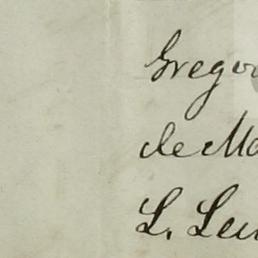 Grego
de Ma
L. Leu